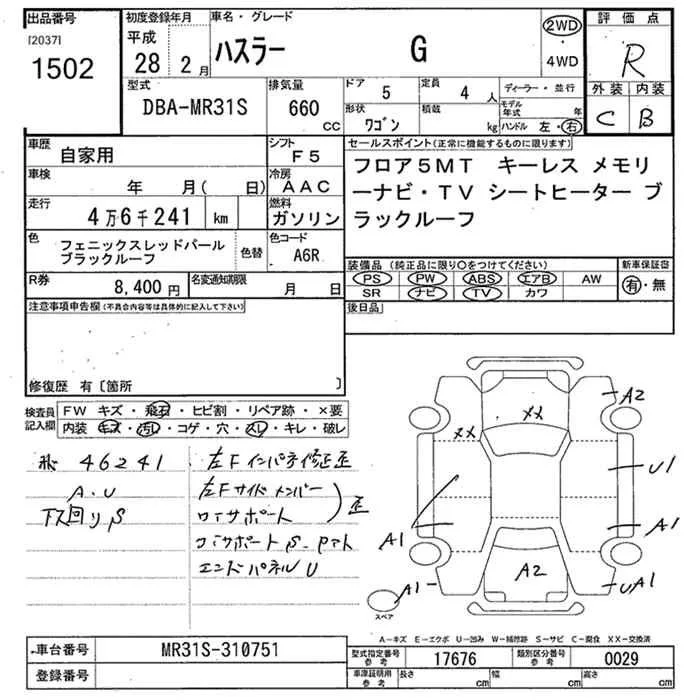 出品番号
[2037]
1502
初度登録年月
平成
28 2月
車名・グレード
ハスラー G
2WD
・
4WD
評価点
R
外装 内装
C B
型式
DBA-MR31S
排気量
660
CC
ドア
5
定員
4 人
ディーラー・並行
形状
ワゴン
積載
kg
モデル年式 年
ハンドル 左・右
車歴
自家用
シフト
F5
車検
年 月( 日)
冷房
AAC
走行
4万6千241 km
燃料
ガソリン
色
フェニックスレッドパール
ブラックルーフ
色替
色コード
A6R
R券
8,400円
名変通知期限
月 日
セールスポイント(正常に機能するものに限ります)
フロア5MT キーレス メモリ
ーナビ・TV シートヒーター ブ
ラックルーフ
装備品 (純正品に限り○をつけてください)
新車保証書
PS PW ABS エアB AW
SR ナビ TV カワ
有・無
後日品
注意事項申告欄(不具合内容等は具体的に記入して下さい)
修復歴 有〔箇所 〕
検査員
記入欄
FW キズ・飛石・ヒビ割・リペア跡・×要
内装 キズ・汚レ・コゲ・穴・スレ・キレ・破レ
46241
A.U
下回りS
左Fインパネ修正歪
左Fサイドメンバー
コアサポート
歪
コアサポートS
エンドパネルU
A2
XX
XX
U1
A1
A1
A2
A1
UA1
スペア
A-キズ E-エクボ U-凹み W-補修跡 S-サビ C-腐食 XX-交換済
車台番号
MR31S-310751
登録番号
型式指定番号
参考
17676
類別区分番号
参考
0029
車庫証明用
参考
長さ cm
幅 cm
高さ cm